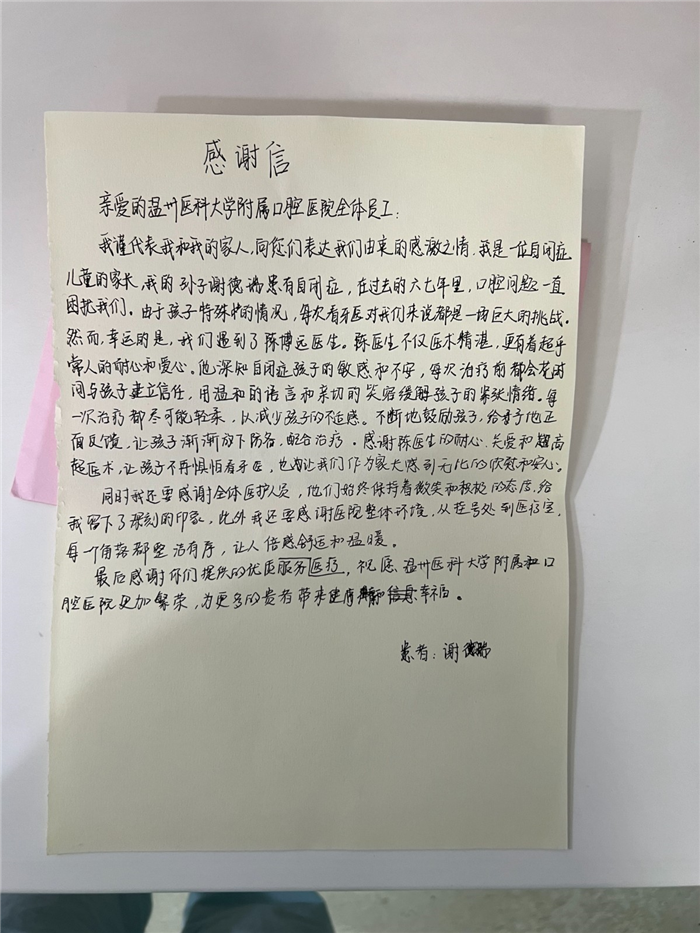 感谢信
亲爱的温州医科大学附属口腔医院全体员工：
我谨代表我和我的家人，向您们表达我们由来的感激之情，我是一位自闭症
儿童的家长，我的孙子谢德瑞患有自闭症，在过去的六七年里，口腔问题一直
困扰我们。由于孩子特殊的情况，每次看牙医对我们来说都是一场巨大的挑战。
然而，幸运的是，我们遇到了陈博远医生。陈医生不仅医术精湛，更有着超乎
常人的耐心和爱心。他深知自闭症孩子的敏感和不安，每次治疗前都会花时
间与孩子建立信任，用温和的语言和亲切的笑容缓解孩子的紧张情绪。每
一次治疗都尽可能轻柔，以减少孩子的不适感。不断地鼓励孩子，给予他正
面反馈，让孩子渐渐放下防备，配合治疗。感谢陈医生的耐心、关爱和高
超医术，让孩子不再惧怕看牙医，也让我们作为家长感到无比的欣慰和安心。
同时我还要感谢全体医护人员，他们始终保持着微笑和积极的态度，给
我留下了深刻的印象，此外我还要感谢医院整体环境，从挂号处到医疗室，
每一个角落都整洁有序，让人倍感舒适和温暖。
最后感谢你们提供的优质服务医疗，祝愿温州医科大学附属和口
腔医院更加繁荣，为更多的患者带来健康和幸福。
患者：谢德瑞